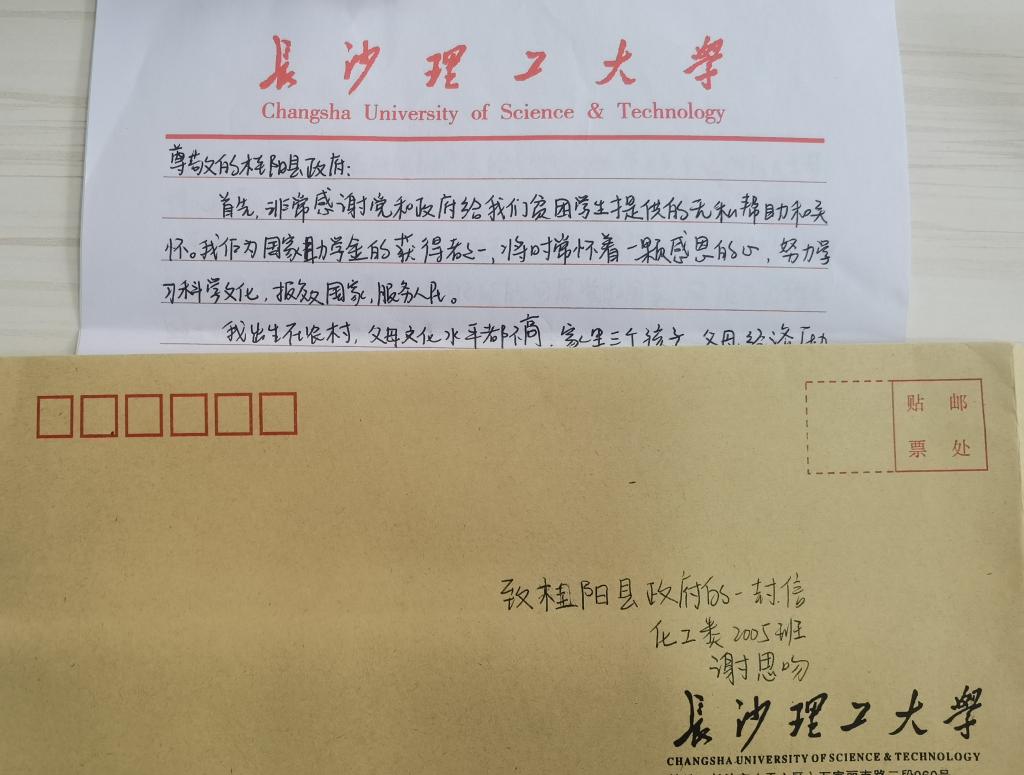 長沙理工大學
Changsha University of Science & Technology
尊敬的桂阳县政府:
首先,非常感谢党和政府给我们贫困学生提供的无私帮助和关
怀。我作为国家助学金的获得者之一,将时常怀着一颗感恩的心,努力学
习科学文化,报效国家,服务人民。
我出生在农村,父母文化水平都不高,家里三个孩子,父母经济压力
贴 邮
票 处
致桂阳县政府的一封信
化工类2005班
谢思吻
長沙理工大學
CHANGSHA UNIVERSITY OF SCIENCE & TECHNOLOGY